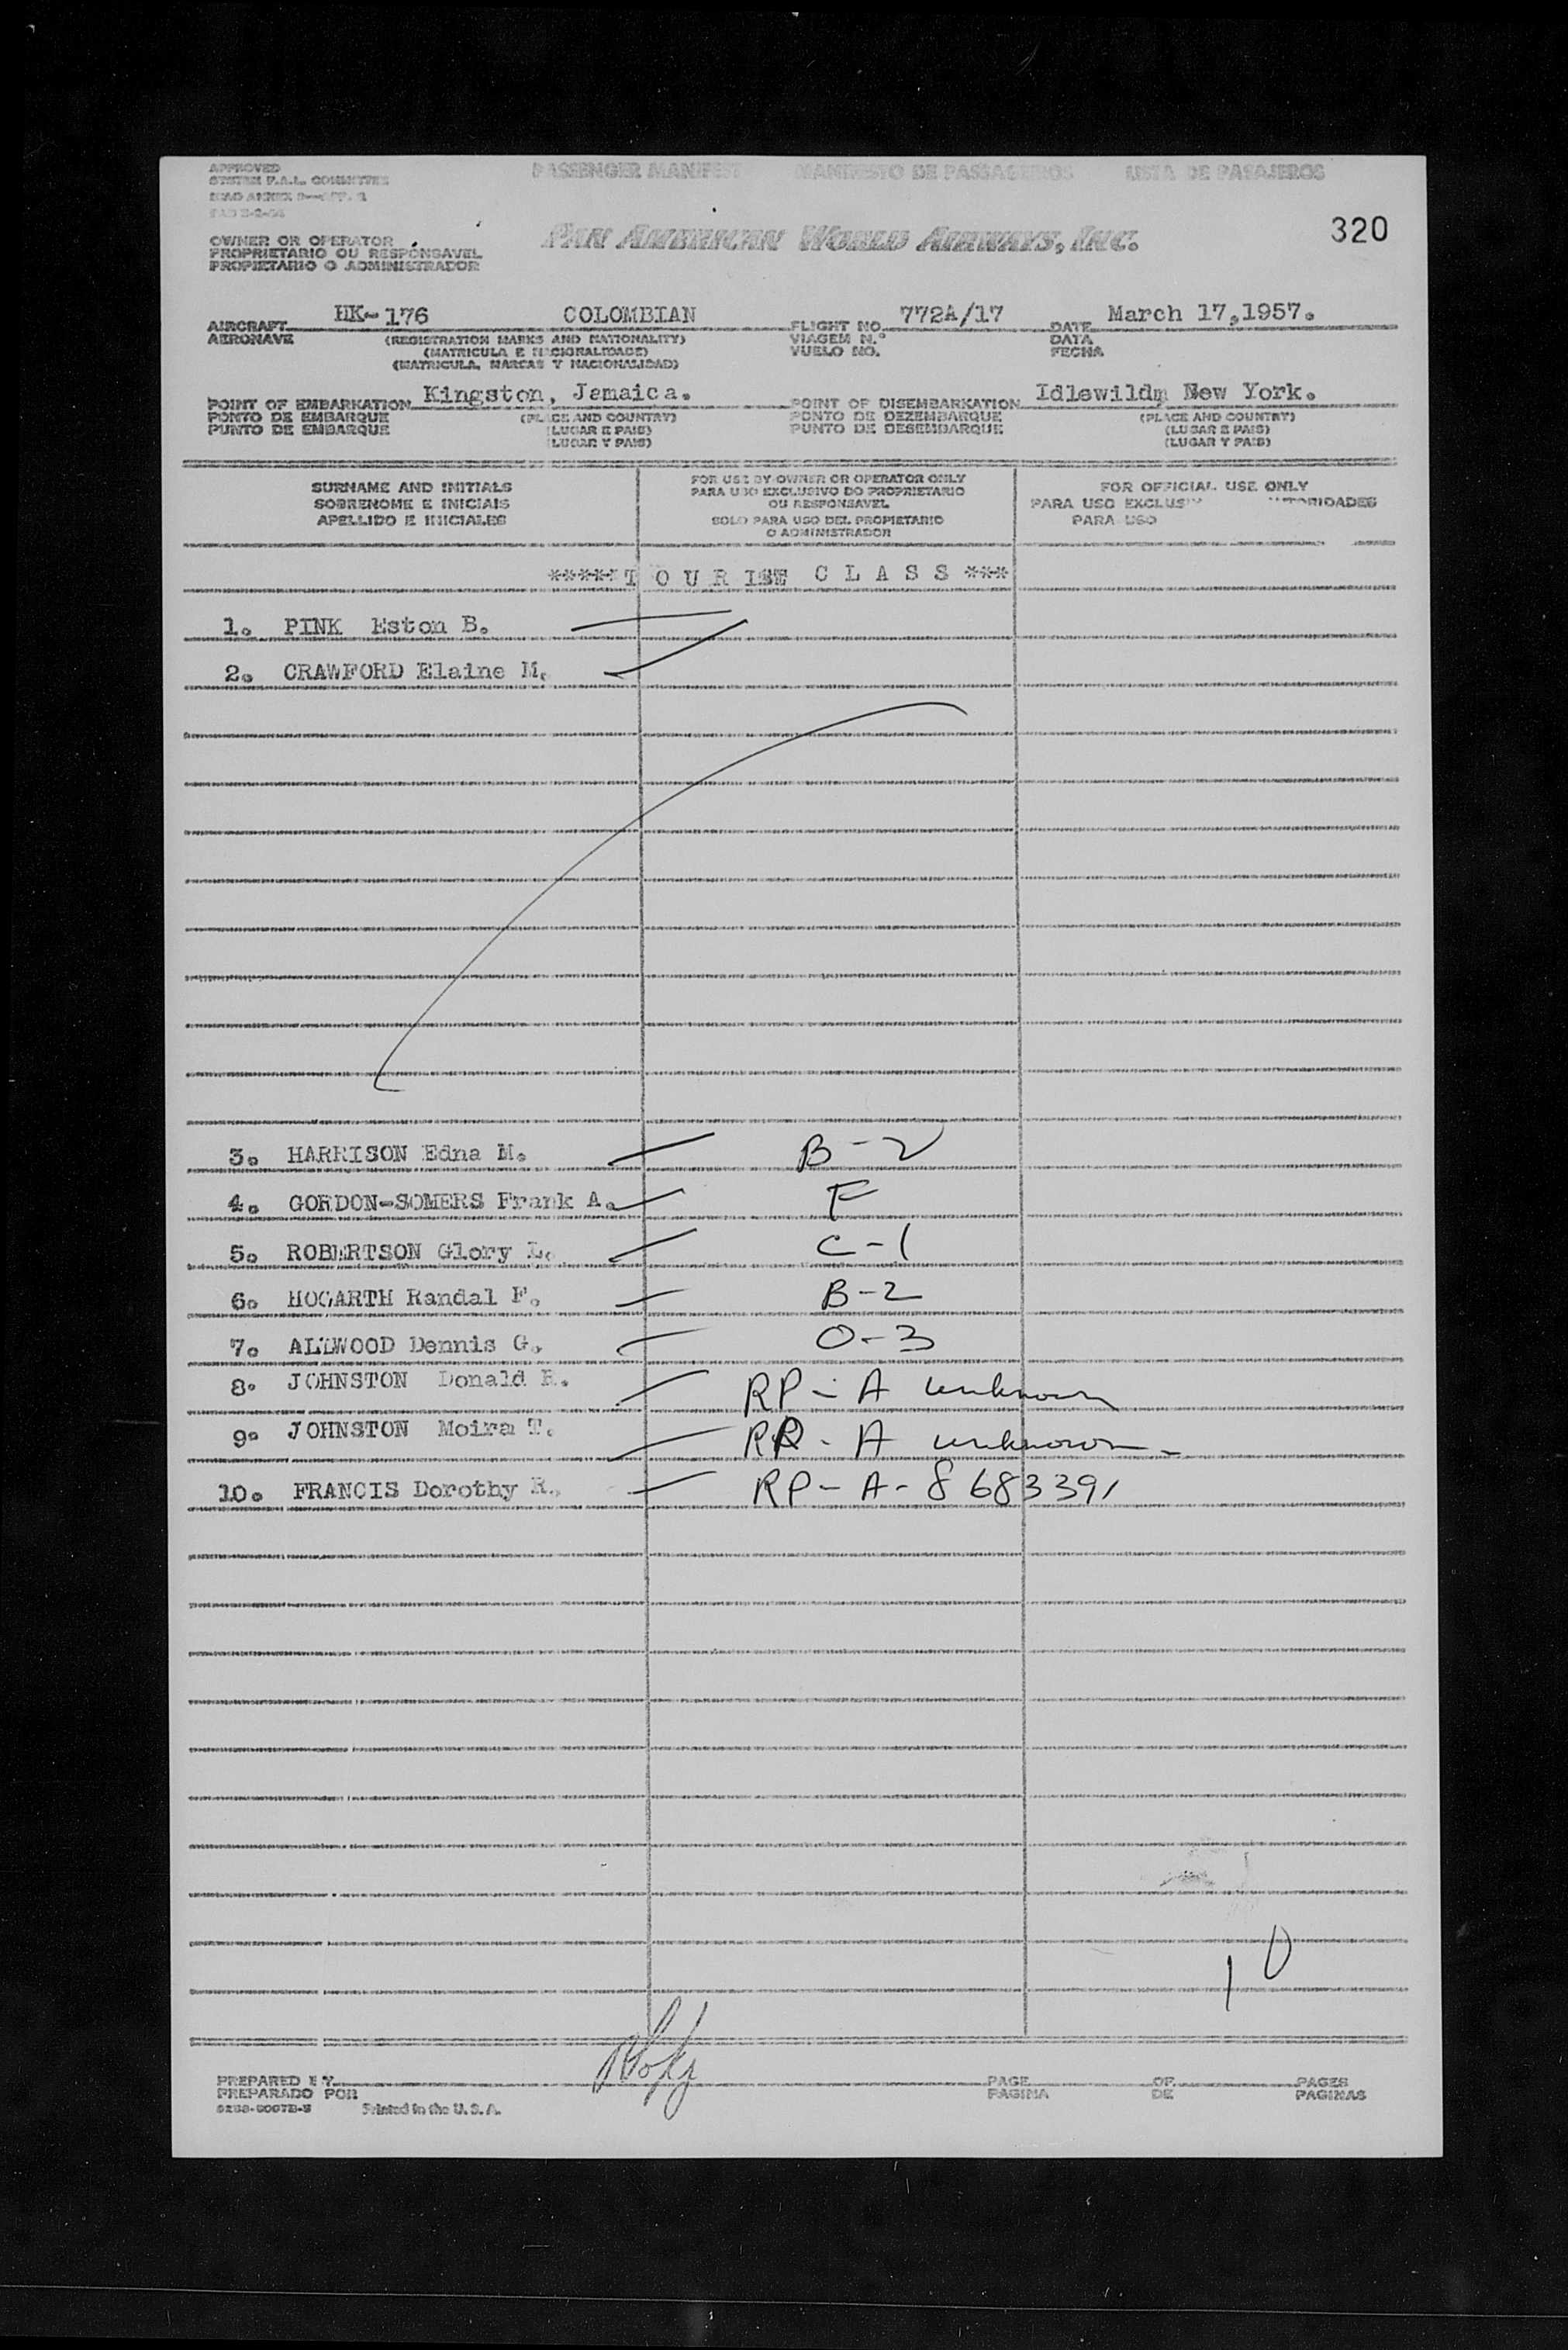 APPROVED
SYSTEM F.A.L. COMMITTEE
ICAO ANNEX
PASSENGER MANIFEST MANIFESTO DE PASSAGEIROS LISTA DE PASAJEROS
320
OWNER OR OPERATOR
PROPRIETARIO OU RESPONSAVEL
PROPIETARIO O ADMINISTRADOR
PAN AMERICAN WORLD AIRWAYS, INC.
AIRCRAFT HK-176 COLOMBIAN FLIGHT NO. 772A/17 DATE March 17,1957.
AERONAVE (REGISTRATION MARKS AND NATIONALITY) VIAGEM N.º DATA
(MATRICULA E NACIONALIDADE) VUELO NO. FECHA
(MATRICULA, MARCAS Y NACIONALIDAD)
POINT OF EMBARKATION Kingston, Jamaica. POINT OF DISEMBARKATION Idlewildm New York.
PONTO DE EMBARQUE (PLACE AND COUNTRY) PONTO DE DEZEMBARQUE (PLACE AND COUNTRY)
PUNTO DE EMBARQUE (LUGAR E PAIS) PUNTO DE DESEMBARQUE (LUGAR E PAIS)
(LUGAR Y PAIS) (LUGAR Y PAIS)
SURNAME AND INITIALS
SOBRENOME E INICIAIS
APELLIDO E INICIALES
FOR USE BY OWNER OR OPERATOR ONLY
PARA USO EXCLUSIVO DO PROPRIETARIO
OU RESPONSAVEL
SOLO PARA USO DEL PROPIETARIO
O ADMINISTRADOR
FOR OFFICIAL USE ONLY
PARA USO EXCLUSIV UTORIDADES
PARA USO
*****T O U R IST C L A S S ***
1. PINK Eston B.
2. CRAWFORD Elaine M.
3. HARRISON Edna M. B-2
4. GORDON-SOMERS Frank A. F
5. ROBERTSON Glory L. C-1
6. HOGARTH Randal F. B-2
7. ALLWOOD Dennis G. O-3
8. JOHNSTON Donald R. RP - A unknown
9. JOHNSTON Moira T. RP - A unknown -
10. FRANCIS Dorothy R. RP - A - 8683391
10
PREPARED BY PAGE OF PAGES
PREPARADO POR PAGINA DE PAGINAS
Printed in the U. S. A.